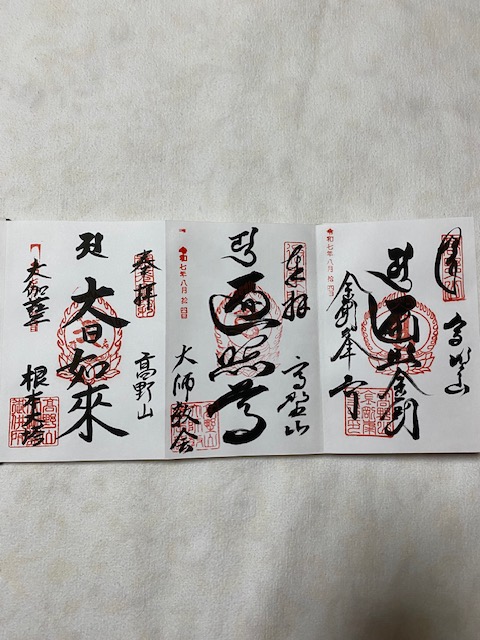 奉拝
高野山
遍照金剛
金剛峯寺
令和七年八月拾四日
奉拝
高野山
遍照尊
大師教会
令和七年八月拾四日
奉拝
高野山
大日如來
大伽藍
根本大塔